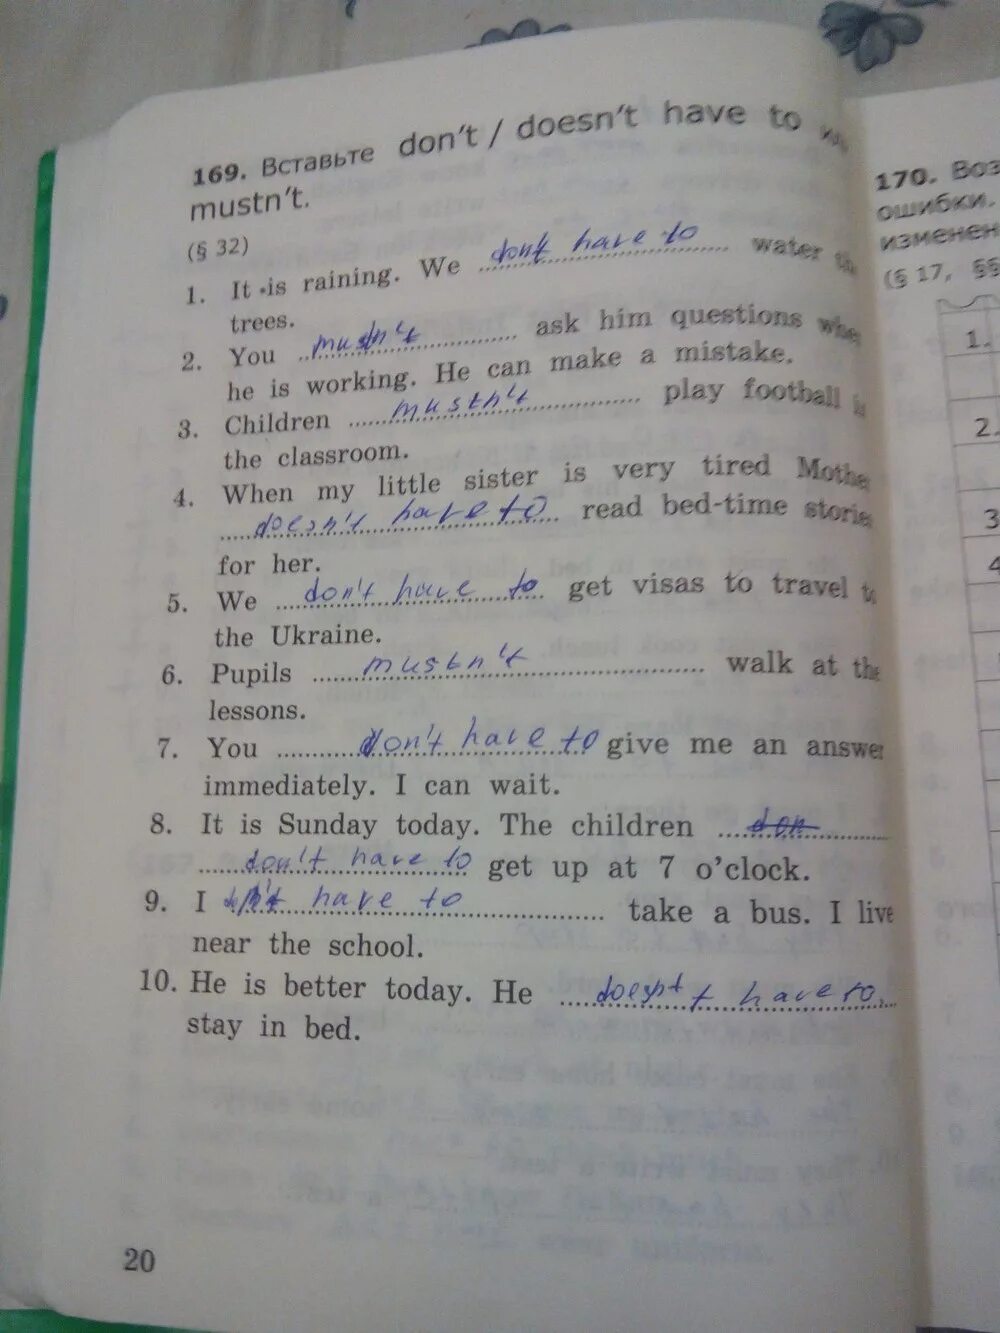 169. Вставьте don't / doesn't have to или
mustn't.
(§ 32)
1. It is raining. We don't have to water the
trees.
2. You mustn't ask him questions when
he is working. He can make a mistake.
3. Children mustn't play football in
the classroom.
4. When my little sister is very tired Mother
doesn't have to read bed-time stories
for her.
5. We don't have to get visas to travel to
the Ukraine.
6. Pupils mustn't walk at the
lessons.
7. You don't have to give me an answer
immediately. I can wait.
8. It is Sunday today. The children don
don't have to get up at 7 o'clock.
9. I don't have to take a bus. I live
near the school.
10. He is better today. He doesn't have to
stay in bed.
20
170. Воз
ошибки.
изменен
(§ 17, §§
1.
2.
3
4